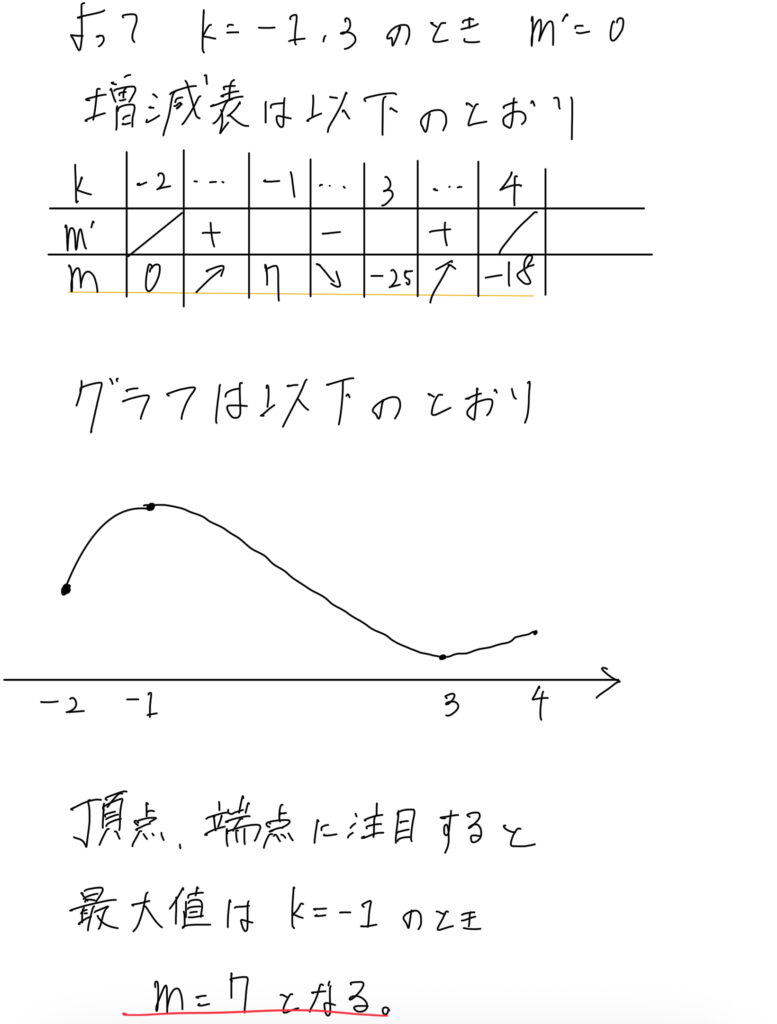 よって k=-1,3 のとき m'=0
増減表は以下のとおり
k -2 … -1 … 3 … 4
m' + - +
m 0 ↗ 7 ↘ -25 ↗ -18
グラフは以下のとおり
-2 -1 3 4
頂点、端点に注目すると
最大値は k=-1 のとき
m=7 となる。